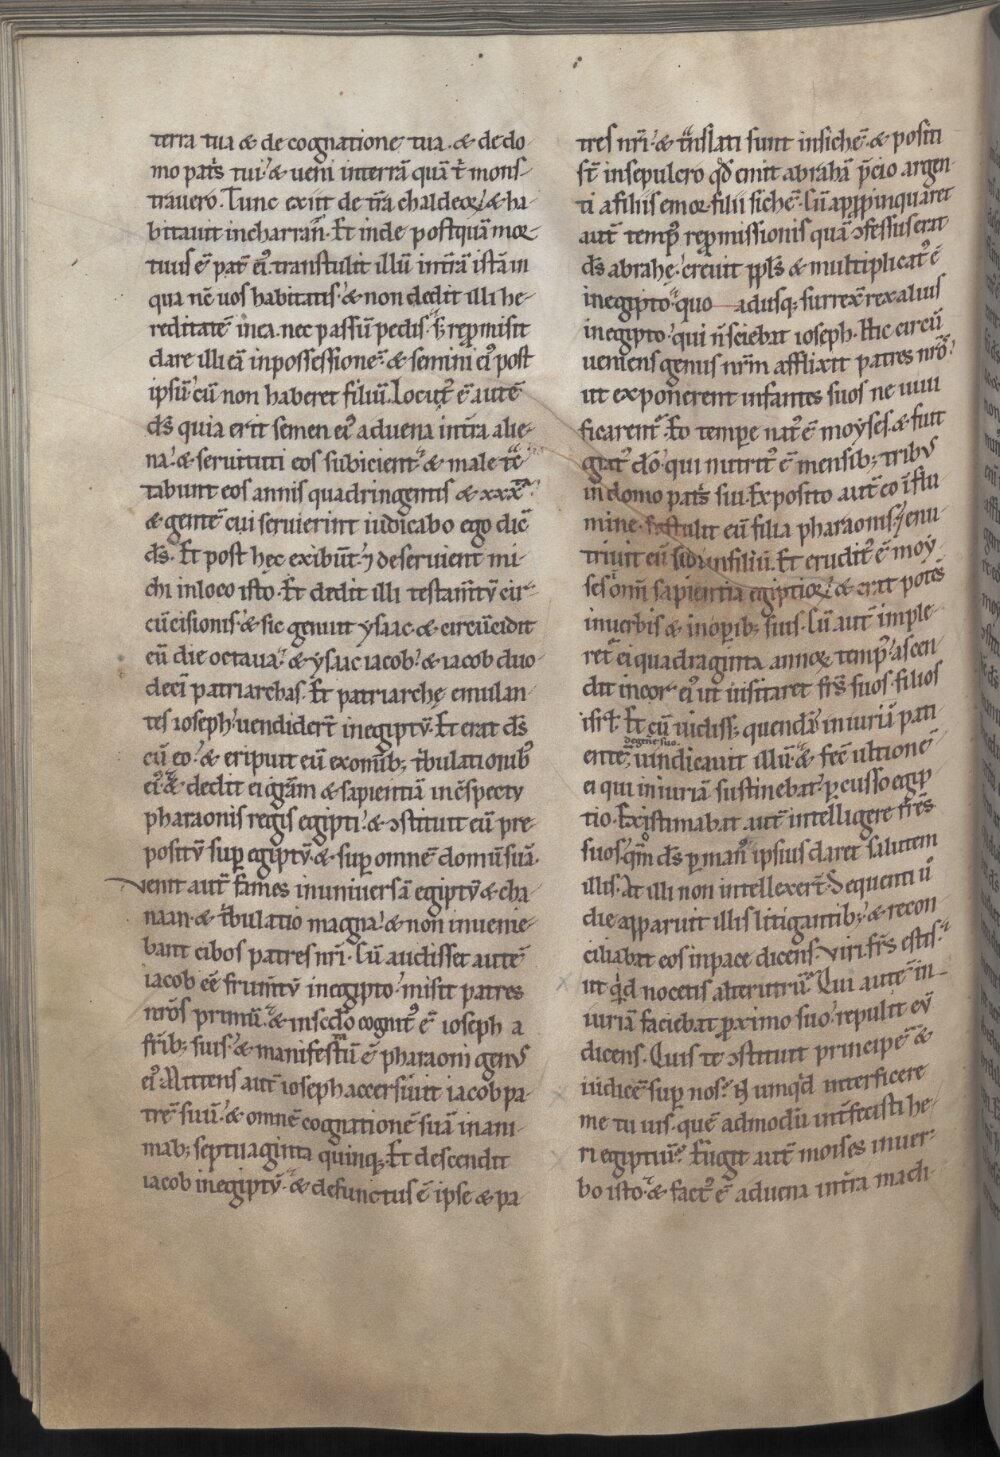 terra tua & de cognatione tua. & de do-
mo pat͛s tui.' & ueni interrā quā t̄ mons-
trauero. Tunc exiit de tr̄a chaldeoꝝ.' & ha-
bitauit incharran. Et inde postquā mor-
tuus ē pat̄ ei᷒. transtulit illū intr̄ā istā in
qua nc̄ uos habitatis.' & non dedit illi he-
reditatē inea. nec passū pedis. s; rep̱misit
dare illi eā inpossessionē. & semini ei᷒ post
ipsū.' cū non haberet filiū. Locut᷒ ē autē
ds̄ quia erit semen ei᷒ aduena intr̄a alie-
na.' & seruituti eos subicient.' & male t̄c
tabunt eos annis quadringentis & xxx.ᵃ
& gentē cui seruierint iudicabo ego dic̄
ds̄. Et post hęc exibūt.' ⁊ deseruient mi-
chi inloco isto. Et dedit illi testam̄tū cir-
cūcisionis.' & sic genuit ysaac. & circūcidit
eū die octaua.' & ysaac iacob.' & iacob duo-
deci patriarchas. Et patriarchę emulan-
tes ioseph.' uendider̄t inegiptū. Et erat ds̄
cū eo.' & eripuit eū exomib; t̄bulationib᷒
ei᷒. & dedit ei gr̄am & sapientiā incspectu
pharaonis regis egipti.' & ↄstituit eū pre-
positū suꝑ egiptū. & suꝑ omnē domū suā.
Venit aut̄ fames inuniuersā egiptū & cha-
naan. & t̄bulatio magna.' & non inuenie-
bant cibos patres nr̄i. Cū audisset autē
iacob eē frum̄tū inegipto.' misit patres
nr̄os primū. & insecd̄o cognit᷒ ē ioseph a
fr̄ib; suis.' & manifestatū ē pharaoni gen᷒
ei᷒. Mittens aut̄ ioseph accersiuit iacob pa-
trē suū.' & omnē cognationē suā in ani-
mab; septuaginta quinq;. Et descendit
iacob inegiptū. & defunctus ē ipse & pa
tres nr̄i.' & tͣnslati sunt insichē. & positi
st̄ insepulcro qd̄ emit abrahā p̄cio argen
ti afiliis emor filii sichē. Cū app̱pinquaret
aut̄ temp᷒ rep̱missionis quā ↄfessus erat
ds̄ abrahę.' creuit ppl̄s & multiplicat᷒ ē
inegipto.' quo adusq; surrex̄ rex alius
inegipto.' qui n̄ sciebat ioseph. Hic circū
ueniens genus nr̄m afflixit patres nr̄o᷒.
ut exponerent infantes suos ne uiui
ficarent᷒. Eo tempe nat᷒ ē moyses. & fuit
grat᷒ dō.' qui nutrit᷒ ē mensib; trib᷒
in domo pat͛s sui. Exposito aut̄ eo ī flu
mine. sustulit eū filia pharaonis.' ⁊ enu
triuit eū sibi infiliū. Et erudit᷒ ē moy
ses omī sapientia egiptioꝝ.' & erat potēs
inuerbis & inopib; suis. Cū aut̄ imple
ret᷒ ei quadraginta annoꝝ temp᷒.' ascen
dit incor ei᷒ ut uisitaret fr̄s suos filios
isrl̄. Et cū uidiss; quendā iniuriū pati
degen̄e suo.
entē, uindicauit illū.' & fec̄ ultionē
ei qui iniuriā sustinebat.' percusso egip
tio. Existimabat aut̄ intelligere fr̄es
suos.' qm̄ ds̄ ꝑ manū ipsius daret salutem
illis. At illi non intellexer̄t. Sequenti ū
die apparuit illis litigantib;.' & recon
ciliabat eos inpace dicens. Viri fr̄s estis.'
ut qͥd nocetis alterutrū. Qui autē in-
iuriā faciebat ꝓximo suo.' repulit eū
dicens. Quis te ↄstituit principē &
iudicē suꝑ nos.' Numqͥd interficere
me tu uis. quē admodū int̄fecisti he-
ri egiptiū. Fugit aut̄ moises inuer-
bo isto.' & fact᷒ ē aduena intr̄a madi-